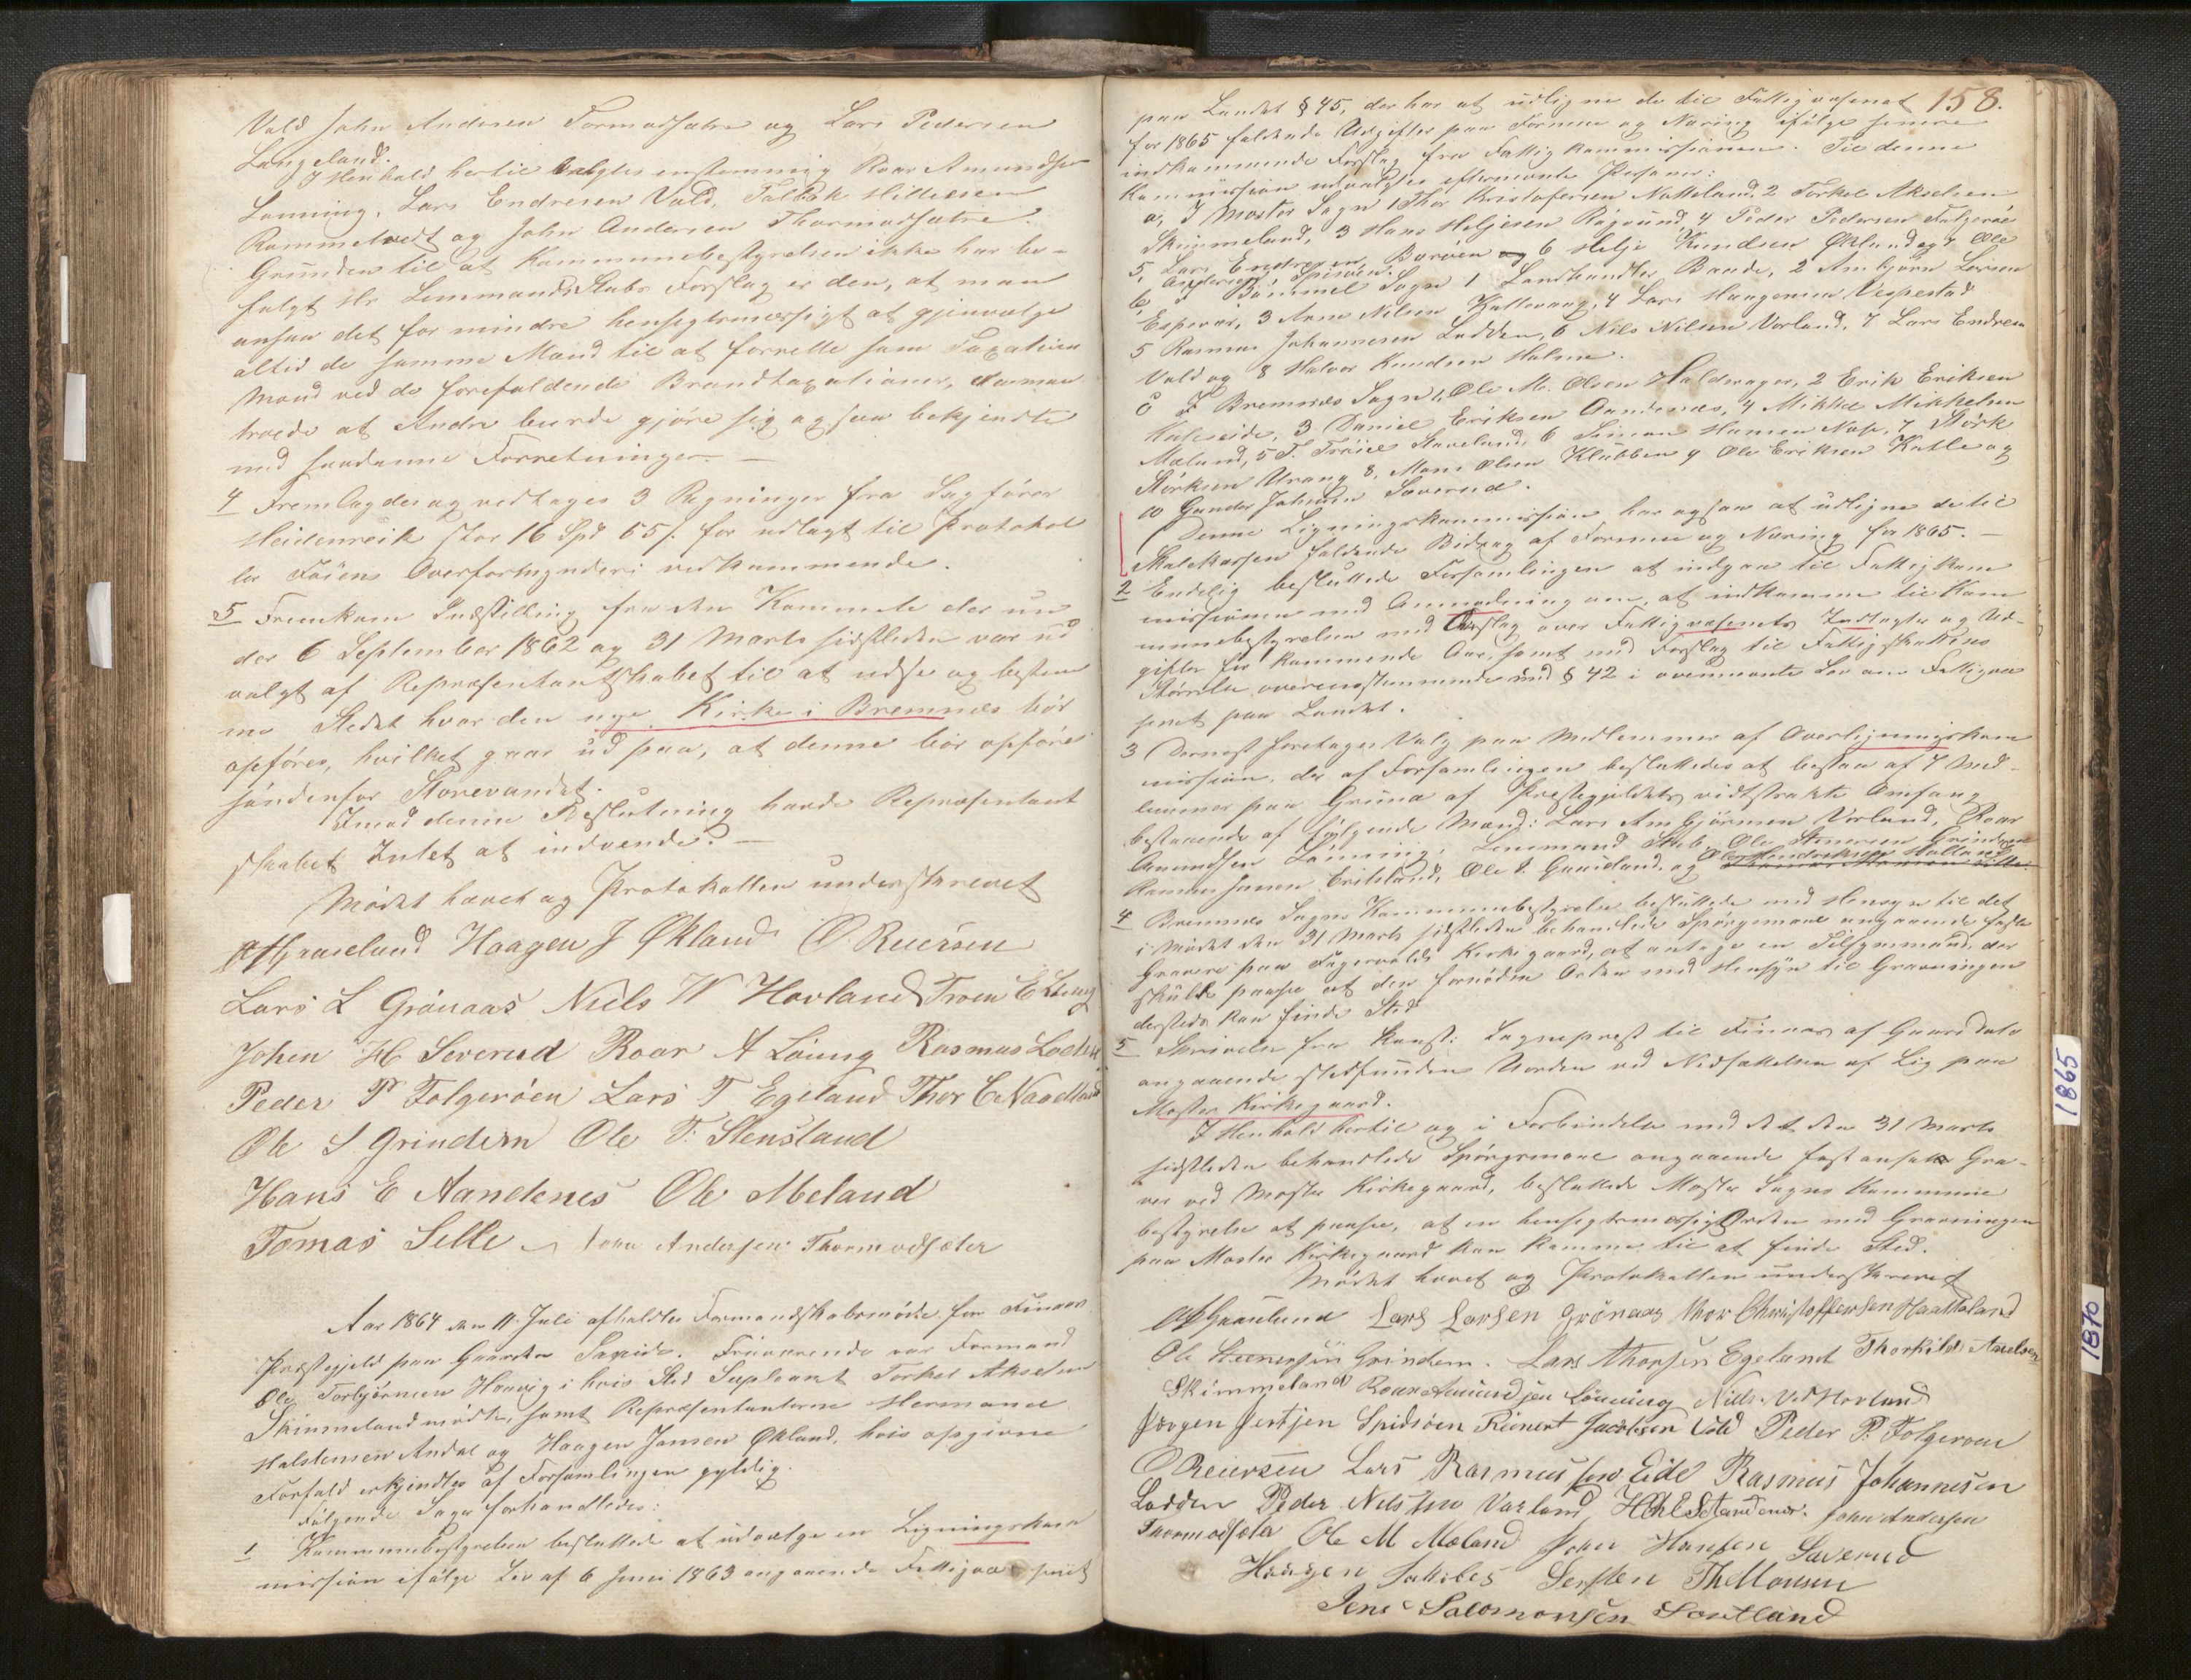 Vold John Andersen Tormodsætre og Lars Pedersen
Langeland.
I Henhold hertil valgtes enstemmig Roar Amundsen
Lønning, Lars Endresen Vold, Tollak Hillesen
Rommetvedt og John Andersen Thormodsætre.
Grunden til at Kommunebestyrelsen ikke har be-
fulgt Hr. Lensmand Stubs Forslag er den, at man
ansaa det for mindre hensigtsmæssigt at gjenvælge
altid de samme Mænd til at forrette som Taxations
Mænd ved de forefaldende Brandtaxationer, da man
troede at Andre burde gjøre sig ogsaa bekjendte
med saadanne Forretninger. —
4 Fremlagdes og vedtoges 3 Regninger fra Sagfører
Heidenreich stor 16 Spd 65 s. for udlagt til Protokol
ler Føiens Overformynderi vedkommende.
5 Fremkom Indstilling fra den Komitee der un
der 6 September 1862 og 31 Marts sidstleden var ud
valgt af Repræsentantskabet til at udse og bestem
me Stedet hvor den nye Kirke i Bremnæs bør
opføres, hvilket gaar ud paa, at denne bør opføres
søndenfor Storevandet.
Imod denne Beslutning havde Repræsentant
skabet Intet at indvende. —
Mødet hævet og Protokollen underskrevet
Haagen J Økland O. Reiersen
Lars L Grönaas Niels W Hovland Troen E
Johen H Severud Roar A Löning Rasmus Lodden
Peder P Folgeröen Lars T Egeland Thor C Naadland
Ole S. Grindem Ole T. Stensland
Hans E Aandenes Ole Meland
Tomas Selle John Andersen Thormodsæter
Aar 1864 den 11 Juli afholdtes Formandskabsmøde for Finaas
Præstegjeld paa Gaarden Særeide. Fraværende var Formand
Ole Torbjørnsen Haavig i hvis Sted Supleant Torkel Akselsen
Skimmeland mødte, samt Repræsentanterne Hermand
Halstensen Andal og Haagen Jansen Økland, hvis opgivne
Forfald erkjendtes af Forsamlingen gyldig.
Følgende Sager forhandledes:
1 Kommunebestyrelsen besluttede at udvælge en Ligningskom
mission ifølge Lov af 6 Juni 1863 angaaende Fattigvæsenet
158.
paa Landet § 45, der har at udligne de til Fattigvæsenet
for 1865 faldende Udgifter paa Formue og Næring ifølge senere
indkommende Forslag fra Fattigkommissionen. Til denne
Kommission udvalgtes efternævnte Personer:
a, I Moster Sogn 1 Thor Kristofersen Natteland, 2 Torkel Akselsen
Skimmeland, 3 Hans Heljesen Røgsund, 4 Peder Pedersen Folgerøe
5, Lars Endresen Borøen og 6 Helje Knudsen Økland og 7 Ole
Andersen Spisøen.
b, I Bømmel Sogn 1 Landhandler Baade, 2 Ambjørn Larsen
Espevær, 3 Arne Nilsen Kallevaag, 4 Lars Haagensen Vespestad
5 Rasmus Johannesen Lodden, 6 Nils Nilsen Vorland, 7 Lars Endresen
Vold og 8 Halvor Knudsen Holme.
c I Bremnæs Sogn 1, Ole M. Olsen Haldorager, 2 Erik Eriksen
Kuleseide, 3 Daniel Eriksen Aandenes, 4 Mikkel Mikkelsen
Mæland, 5 T. Trøiel Stavland, 6 Simon Hansen Næse, 7 Størk
Størksen Urang 8, Mons Olsen Klubben 9 Ole Eriksen Katle og
10 Gunder Johnsen Sæverud.
Denne Ligningskommission har ogsaa at udligne de til
Skolekassen faldende Bidrag af Formue og Næring for 1865. —
2 Endelig besluttede Forsamlingen at indgaa til Fattigkom
missionen med Anmodning om, at indkomme til Kom
munebestyrelsen med Overslag over Fattigvæsenets Indtægter og Ud-
gifter for kommende Aar, samt med Forslag til Fattigskattens
Størrelse overensstemmende med § 42 i ovennævnte Lov om Fattigvæ
senet paa Landet.
3 Dernæst foretoges Valg paa Medlemmer af Overligningskom
mission, der af Forsamlingen besluttedes at bestaa af 7 Med-
lemmer paa Grund af Præstegjeldets vidtstrakte Omfang
bestaaende af følgende Mænd: Lars Ambjørnsen Vorland, Roar
Amundsen Lønning, Lensmand Stub, Ole Stenersen Grindem
Rasmus Eriksland, Ole J. Gaaseland, og Ole Hendriksen
4 Bremnæs Sogns Kommunebestyrelse besluttede med Hensyn til det
i Mødet den 31 Marts sidstleden behandlede Spørgsmaal angaaende faste
Gravere paa Fagervolds Kirkegaard, at antage en Tilsynsmand, der
skulde paase at den fornødne Orden med Hensyn til Gravningen
dersteds kan finde Sted
5 Skrivelse fra Konst: Sogneprest til Finaas af Gaarddato
angaaende stedfunden Uorden ved Nedsættelsen af Lig paa
Moster Kirkegaard.
I Henhold hertil og i Forbindelse med det den 31 Marts
sidstleden behandlede Spørgsmaal angaaende fast ansatte Gra-
ver ved Moster Kirkegaard, besluttede Moster Sogns Kommune
bestyrelse at paase, at en hensigtsmæssig Orden med Gravningen
paa Moster Kirkegaard kan komme til at finde Sted.
Mødet hævet og Protokollen underskrevet
Lars Larsen Grönaas Thor Christoffersen Naatteland
Ole Steenersen Grindem. Lars Thorsen Egeland Thorkild Axelsen
Skimmeland Roar Amundsen Lönning Niels Hovland
Jørgen Spidsöen Reinert Jacobsen Vold Peder P. Folgeröen
O Reiersen Lars Rasmussen Eide Rasmus Johannesen
Lodden Peder Nelssen Varland H E Aandenes. John Andersen
Thormodsæter Ole M Mæland John Hansen Sæverud
Haagen Th Monsen
Jens Salomonsen Sortland
1865
1870